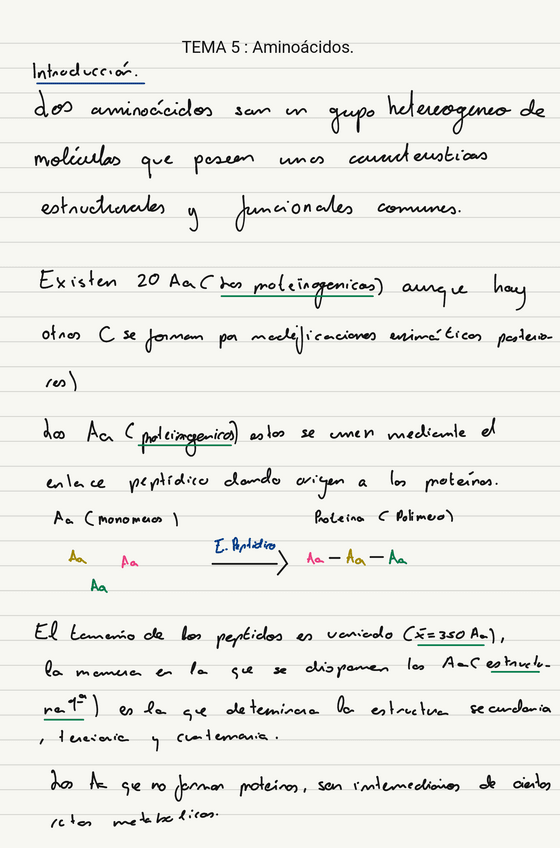 TEMA 5 : Aminoácidos.
Introducción.
Los aminoácidos son un gupo heterogeneo de
moléculas que poseen unas características
estructurales y funcionales comunes.
Existen 20 Aa (Los proteinogenicos) aunque hay
otros ( se forman por modificaciones enzimáticos posterio-
res)
Los Aa (proteinogenicos) estos se unen mediante el
enlace peptídico dando origen a los proteínas.
Aa (monomeros)
Proteina (Polimero)
Aa Aa
Aa
E. Peptídico
Aa — Aa — Aa
El tamaño de los peptidos es variado (x̄=350 Aa),
la manera en la que se disponen los Aa (estructu-
ra 1ª) es la que determinara la estructura secundaria
, terciaria y cuaternaria.
Los Aa que no forman proteínas, son intermediarios de ciertos
rctos metabolicos.